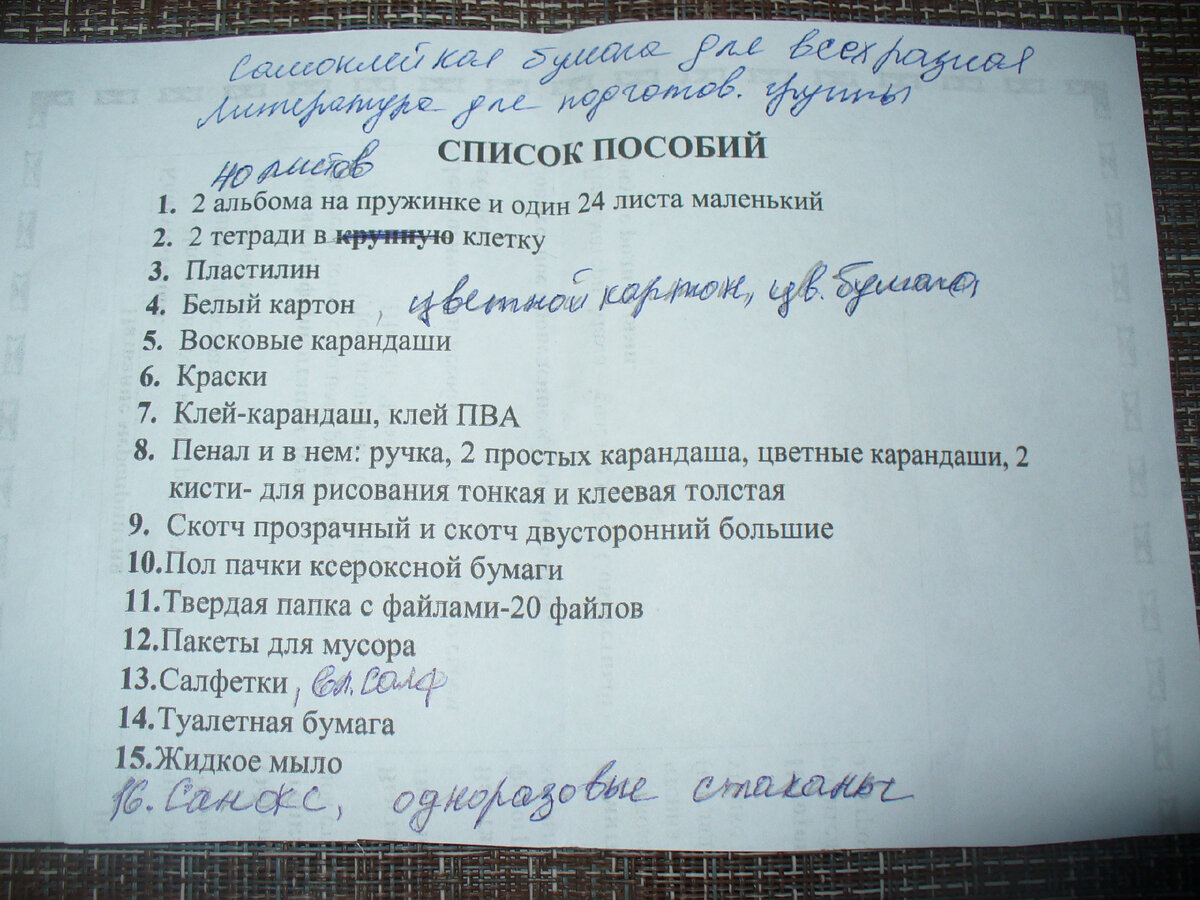 Самоклейкая бумага для всех разная
Литература для подготов. группы
СПИСОК ПОСОБИЙ
40 листов
1. 2 альбома на пружинке и один 24 листа маленький
2. 2 тетради в крупную клетку
3. Пластилин
4. Белый картон , цветной картон, цв. бумага
5. Восковые карандаши
6. Краски
7. Клей-карандаш, клей ПВА
8. Пенал и в нем: ручка, 2 простых карандаша, цветные карандаши, 2
кисти- для рисования тонкая и клеевая толстая
9. Скотч прозрачный и скотч двусторонний большие
10.Пол пачки ксероксной бумаги
11.Твердая папка с файлами-20 файлов
12.Пакеты для мусора
13.Салфетки, вл. салф
14.Туалетная бумага
15.Жидкое мыло
16. Санокс, одноразовые стаканы